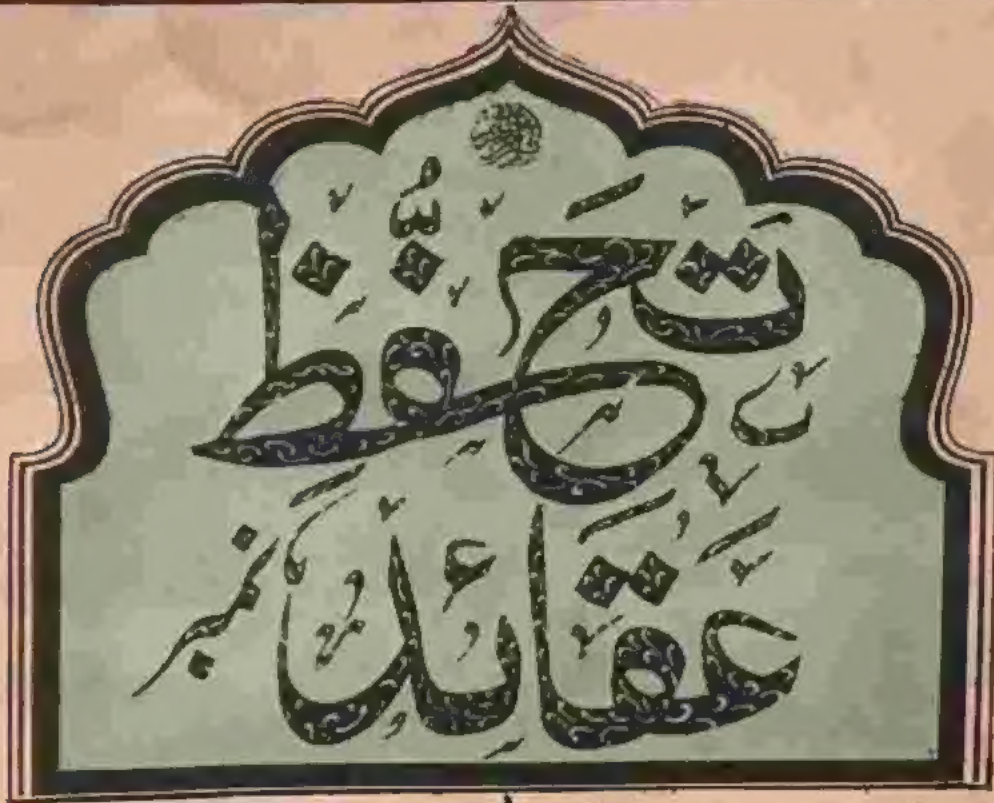 تَحَفُّظِ
عَقَائِد نمبر